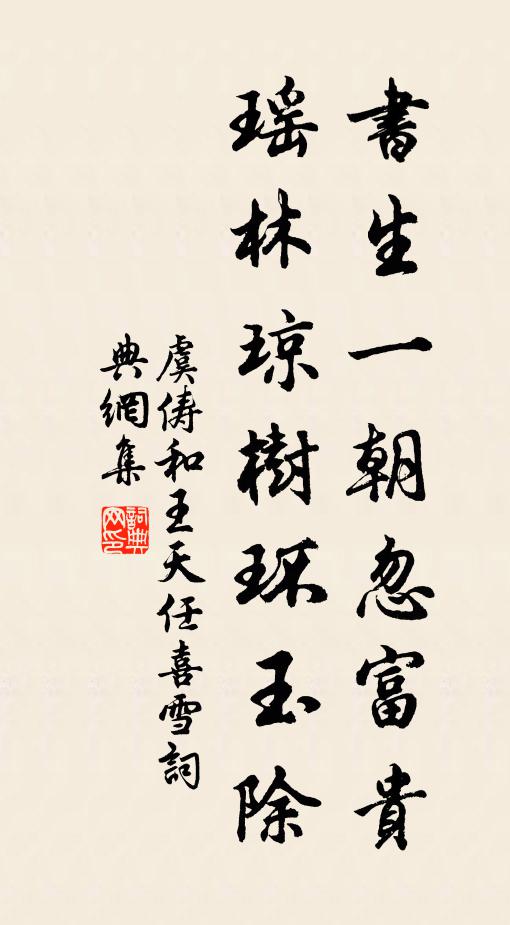 書生一朝忽富貴
瑶林琼樹环玉除
虞俦和王天任喜雪詞
典網集
詞典网印